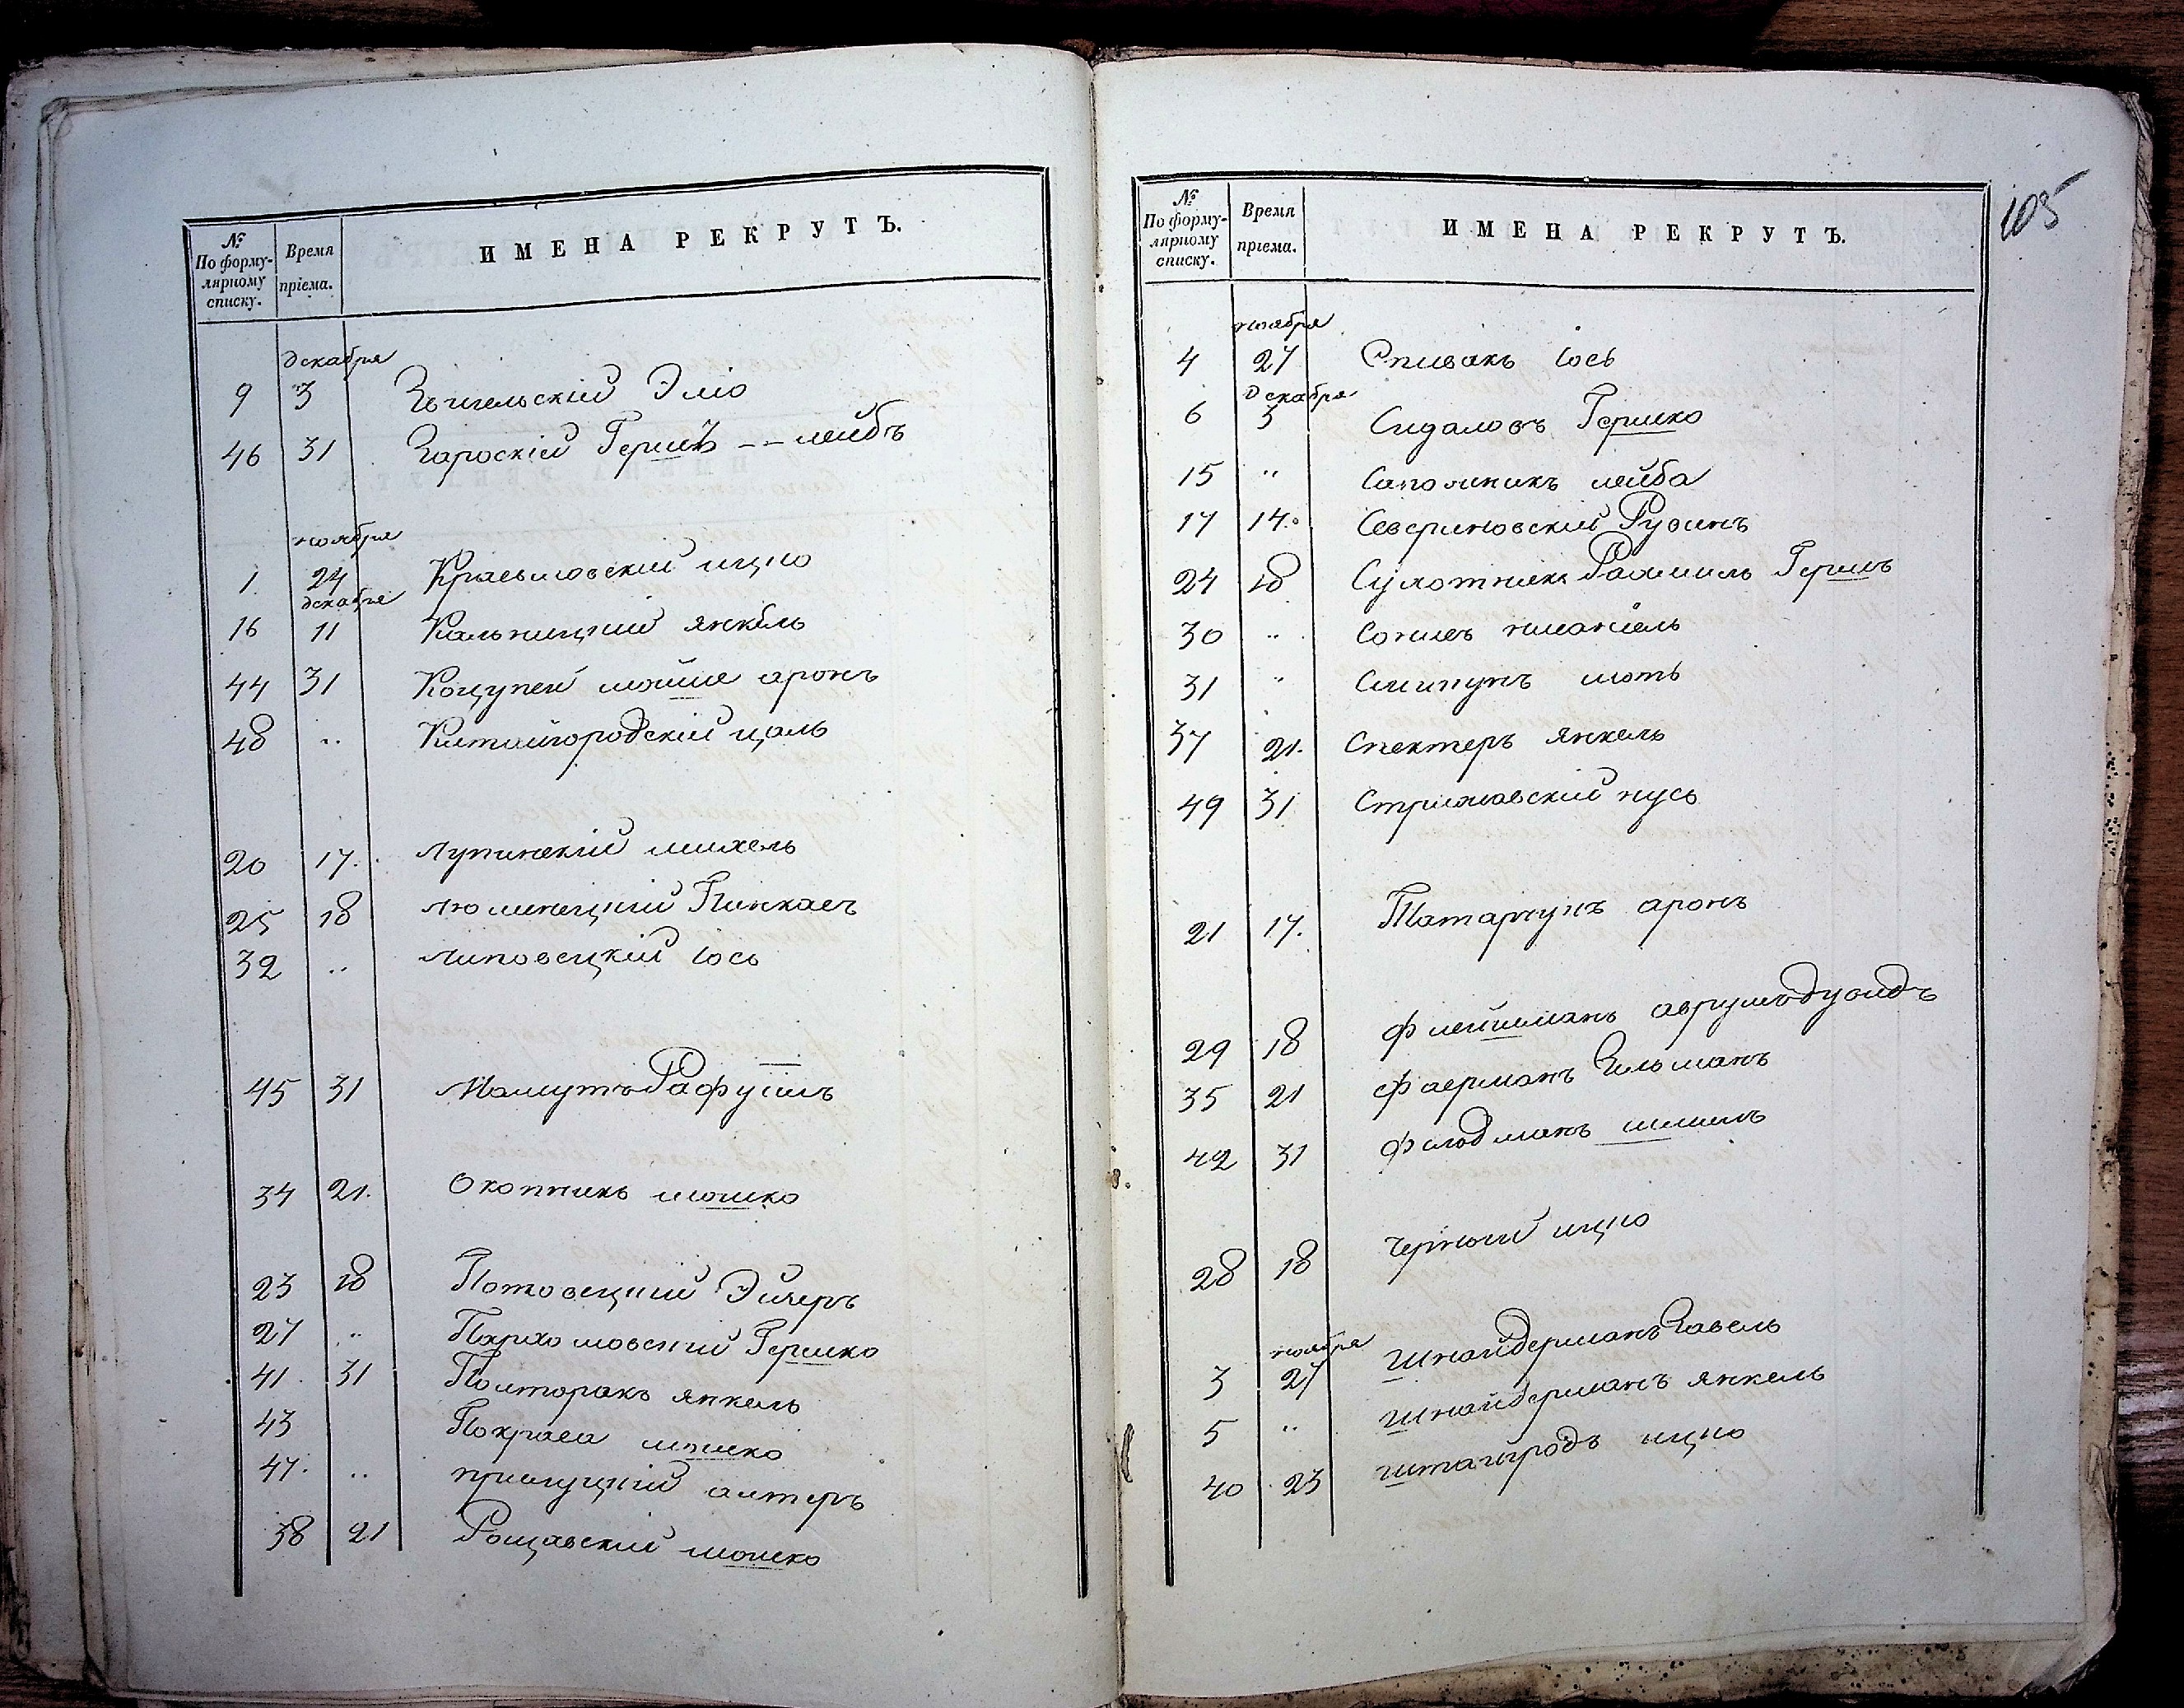 №
По форму-
лярному
списку.
Время
пріема.
ИМЕНА РЕКРУТЪ.
декабря
9 3 Эліо
46 31 Гершъ -- лейбъ
ноября
1. 24 ицко
декабря
16 11 Кальницкій янкель
44 31 Коцупей мойше аронъ
48 " Китайгородскій цаль
20 17. Лупинскій михель
25 18 Пинкасъ
32 " Липовецкій іось
45 31 Мамутъ
34 21. Окопникъ мошко
23 18 Потовецкій
27 " Пархомовскій Гершко
41. 31 Полторакъ янкель
43 Покраса мошко
47. " прилуцкій алтеръ
38 21 Рощавскій мошко
105
№
По форму-
лярному
списку.
Время
пріема.
ИМЕНА РЕКРУТЪ.
ноября
4 27 Спивакъ іось
декабря
6 3 Сидаловъ Гершко
15 " Сапожникъ лейба
17 14. Севериновскій Рувинъ
24 18 Сухотникъ Рахмиль Гершъ
30 "
31 " моть
37 21. Спектеръ янкель
49 31 Стрижавскій нусь
21 17. Татарчукъ аронъ
29 18 флейшманъ аврумъ дувидъ
35 21 фаерманъ Зельманъ
42 31 шмиль
28 18 Черный ицко
ноября
3 27 Шнайдерманъ Завель
5 " Шнайдерманъ янкель
40 23 Штайгродъ ицко